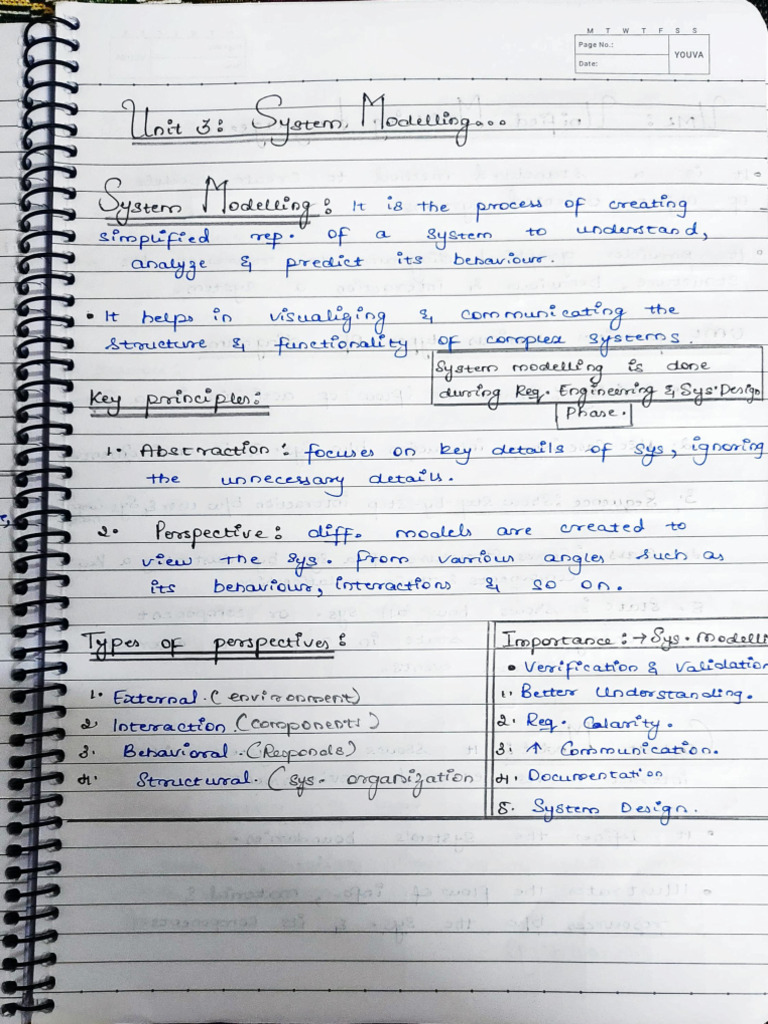 M T W T F S S
Page No.:
Date:
YOUVA
Unit 3: System Modelling...
System Modelling: It is the process of creating
simplified rep. of a system to understand,
analyze & predict its behaviour.
• It helps in visualiging & communicating the
structure & functionality of complex systems.
System modelling is done
during Req. Engineering & Sys. Design
Phase.
Key principles:
1. Abstraction: focuses on key details of sys, ignoring
the unnecessary details.
2. Perspective: diff. models are created to
view the sys. from various angles such as
its behaviour, interactions & so on.
Types of perspectives:
1. External. (environment)
2. Interaction (components)
3. Behavioral. (Responds)
4. Structural. (sys. organization
Importance: → Sys. Modelli
• Verification & Validation
1. Better Understanding.
2. Req. Calarity.
3. ↑ Communication.
4. Documentation
5. System Design.